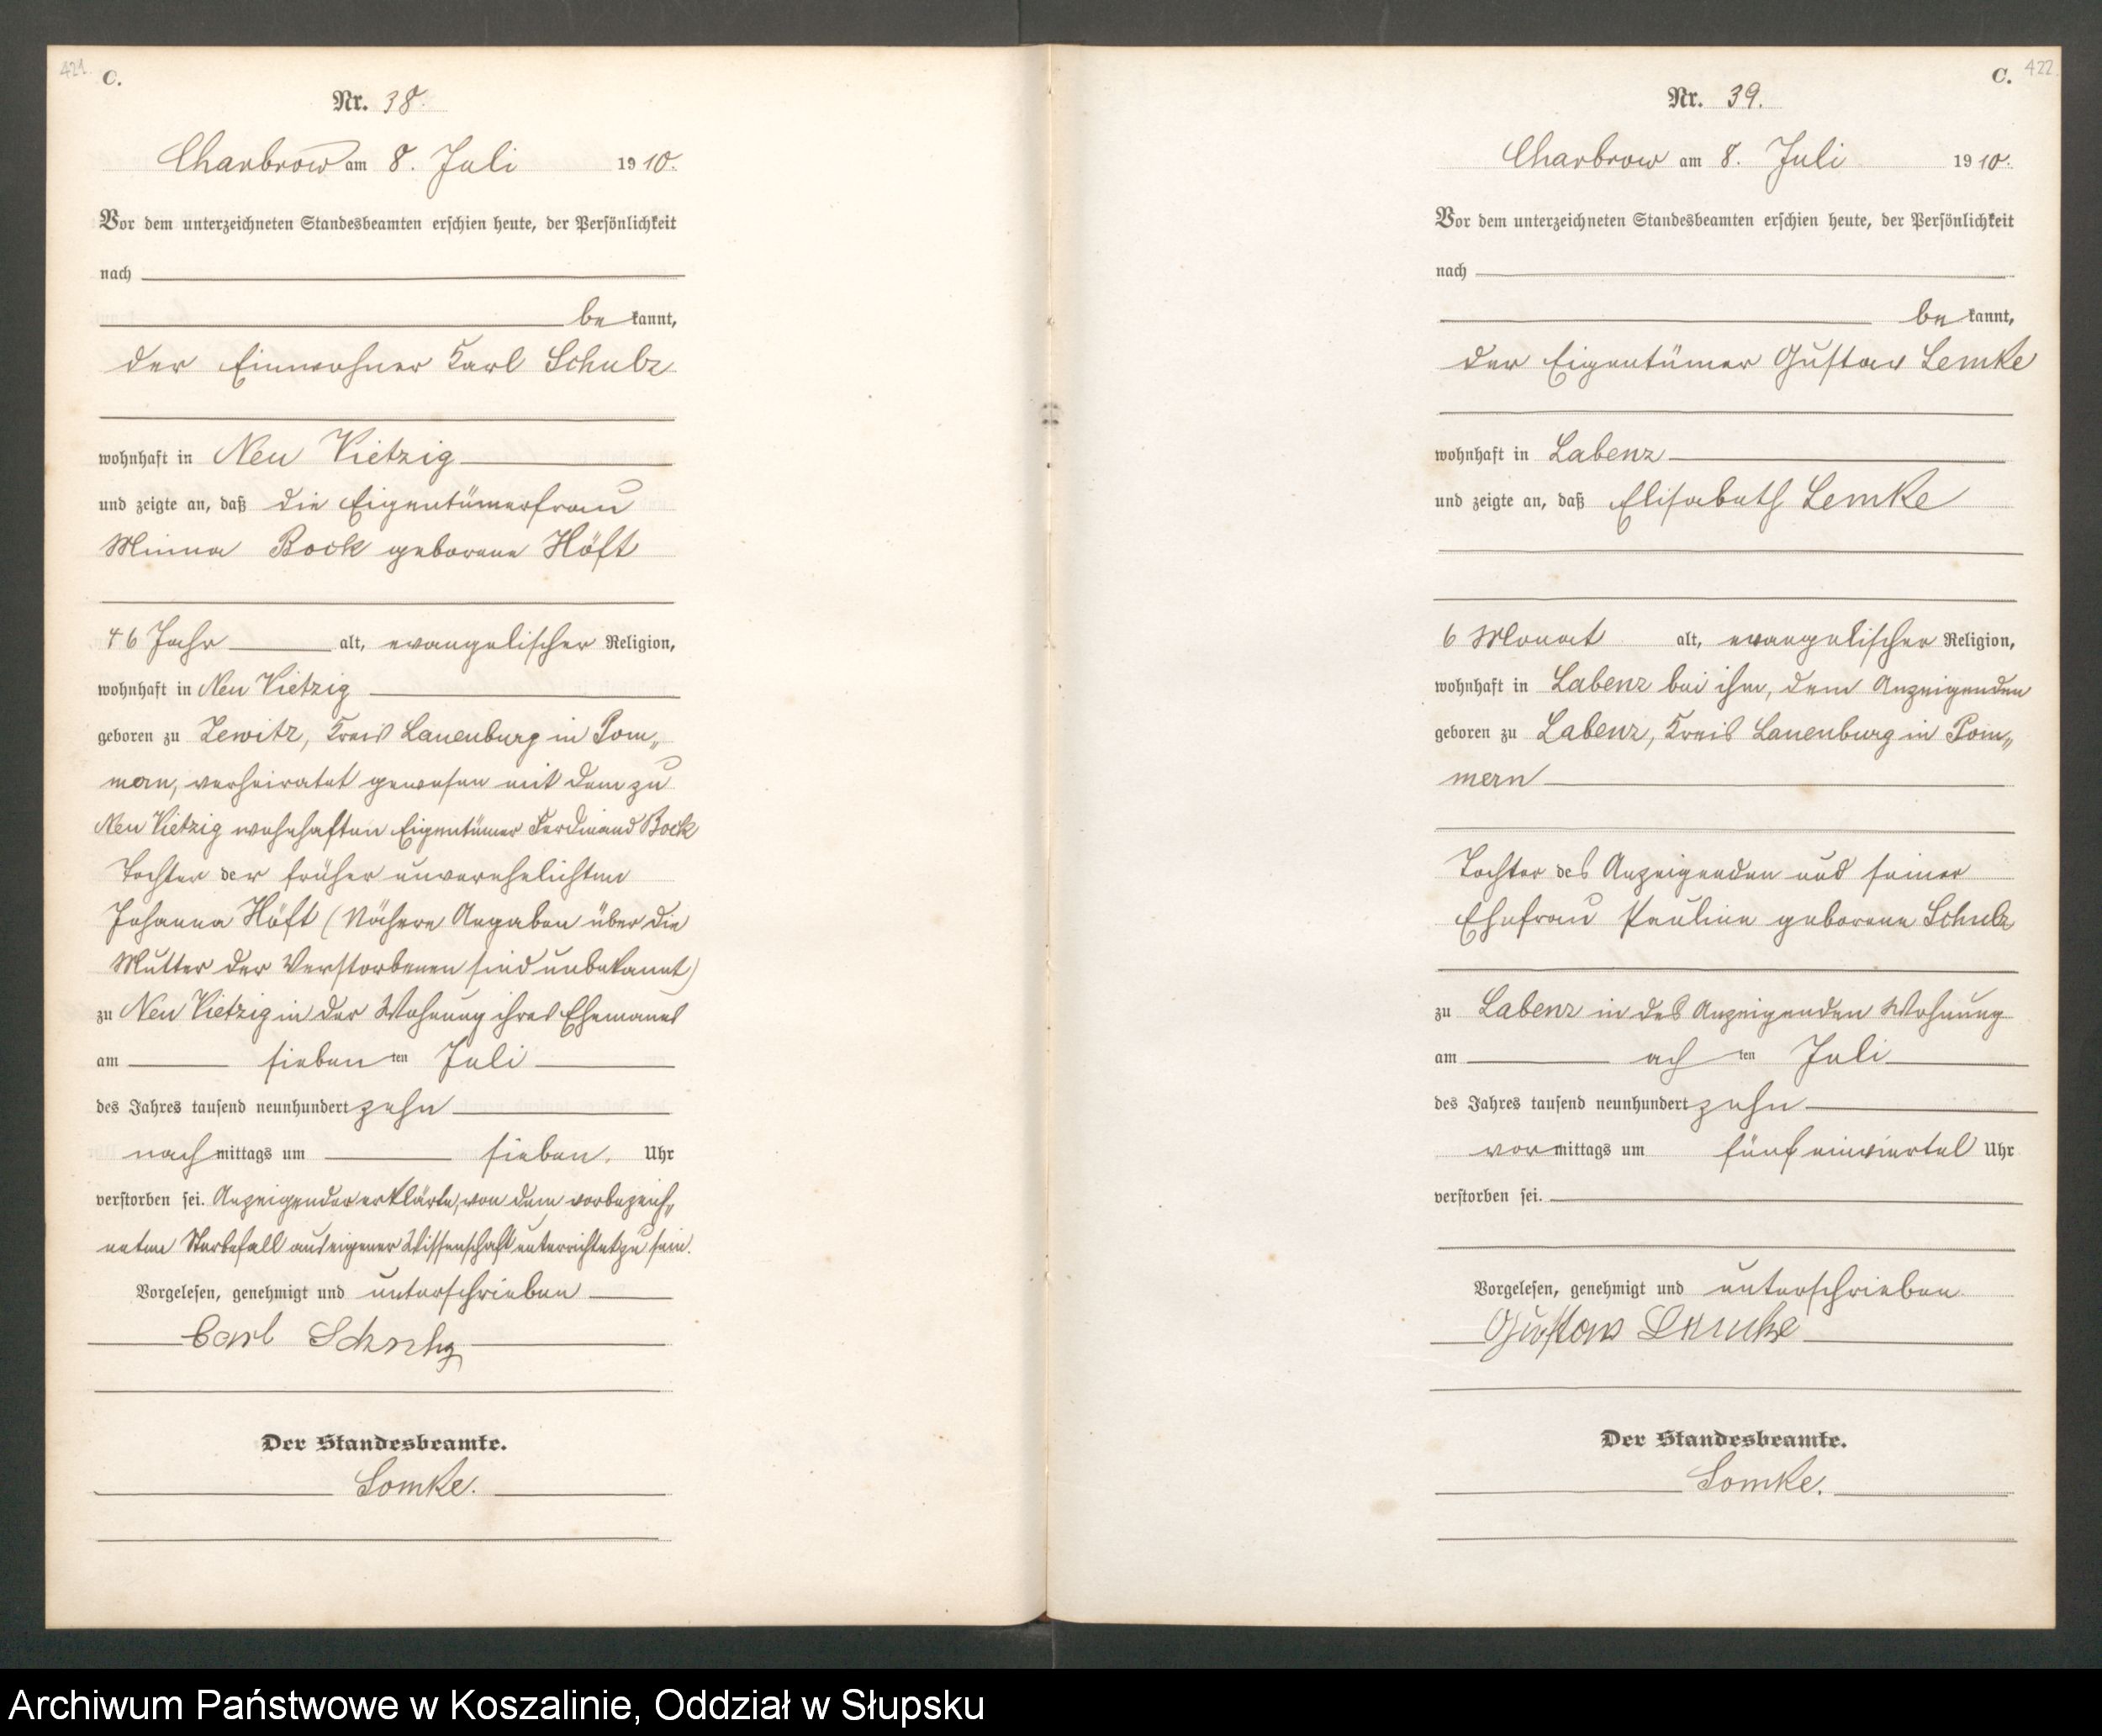 421.
C.
Nr. 38.
Charbrow am 8. Juli 1910.
Vor dem unterzeichneten Standesbeamten erschien heute, der Persönlichkeit
nach
bekannt,
der Einwohner Karl Schulz
wohnhaft in Neu Vietzig
und zeigte an, daß die Eigentümerfrau
Minna Bock geborene Höft
46 Jahr alt, evangelischer Religion,
wohnhaft in Neu Vietzig
geboren zu Zewitz, Kreis Lauenburg in Pom„
mern, verheiratet gewesen mit dem zu
Neu Vietzig wohnhaften Eigentümer Ferdinand Bock
Tochter der früher unverehelichten
Johanna Höft (Nähere Angaben über die
Mutter der Verstorbenen sind unbekannt)
zu Neu Vietzig in der Wohnung ihres Ehemanns
am siebenten Juli
des Jahres tausend neunhundert zehn
nachmittags um sieben. Uhr
verstorben sei. Anzeigender erklärte, von dem vorbezeich„
neten Sterbefall aus eigener Wissenschaft unterrichtet zu sein.
Vorgelesen, genehmigt und unterschrieben
Carl Schulz
Der Standesbeamte.
Lomke.
C. 422.
Nr. 39.
Charbrow am 8. Juli 1910.
Vor dem unterzeichneten Standesbeamten erschien heute, der Persönlichkeit
nach
bekannt,
der Eigentümer Gustav Lemke
wohnhaft in Labenz
und zeigte an, daß Elisabeth Lemke
6 Monat alt, evangelischer Religion,
wohnhaft in Labenz bei ihm, dem Anzeigenden
geboren zu Labenz, Kreis Lauenburg in Pom„
mern
Tochter des Anzeigenden und seiner
Ehefrau Pauline geborene Schulz
zu Labenz in des Anzeigenden Wohnung
am achten Juli
des Jahres tausend neunhundert zehn
vormittags um fünf einviertel Uhr
verstorben sei.
Vorgelesen, genehmigt und unterschrieben
Gustav Lemke
Der Standesbeamte.
Lomke.
Archiwum Państwowe w Koszalinie, Oddział w Słupsku